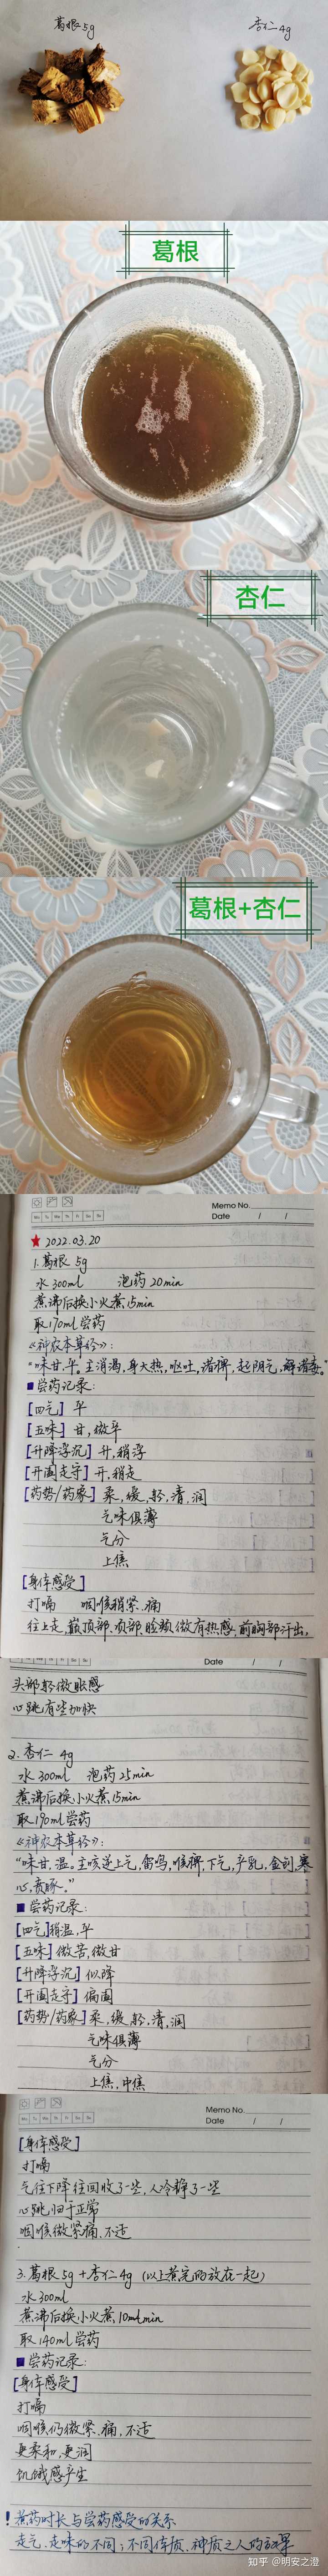 葛根 5g
杏仁 4g
葛根
杏仁
葛根+杏仁
Memo No.
Mo Tu We Th Fr Sa Su
Date / /
★ 2022.03.20
1.葛根 5g
水 300ml 泡药 20min
煮沸后换小火煮15min
取170ml尝药
《神农本草经》:
“味甘,平。主消渴,身大热,呕吐,诸痹,起阴气,解诸毒。”
■尝药记录:
[四气] 平
[五味] 甘,微辛
[升降浮沉] 升,稍浮
[开阖走守] 开,稍走
[药势/药象] 柔,缓,轻,清,润
气味俱薄
气分
上焦
[身体感受]
打嗝 咽喉稍紧.痛
往上走,巅顶部.项部.脸颊微有热感.前胸部汗出.
Date / /
头部轻微胀感
心跳有些加快
2.杏仁 4g
水 300ml 泡药 25min
煮沸后换小火煮15min
取190ml尝药
《神农本草经》:
“味甘,温。主咳逆上气,雷鸣,喉痹,下气,产乳,金创,寒
心,贲豚。”
■尝药记录:
[四气]稍温,平
[五味] 微苦,微甘
[升降浮沉] 似降
[开阖走守] 偏阖
[药势/药象] 柔,缓,轻,清,润
气味俱薄
气分
上焦.中焦
Memo No.
Mo Tu We Th Fr Sa Su
Date / /
[身体感受]
打嗝
气往下降往回收了一些,人冷静了一些
心跳归于正常
咽喉微紧痛.不适
3.葛根5g+杏仁4g (以上煮完的放在一起)
水300ml
煮沸后换小火煮10min
取140ml尝药
■尝药记录:
[身体感受]
打嗝
咽喉仍微紧.痛,不适
更柔和,更润
饥饿感产生
!煮药时长与尝药感受的关系
走气、走味的不同;不同体质.神质之人的
知乎 @明安之澄